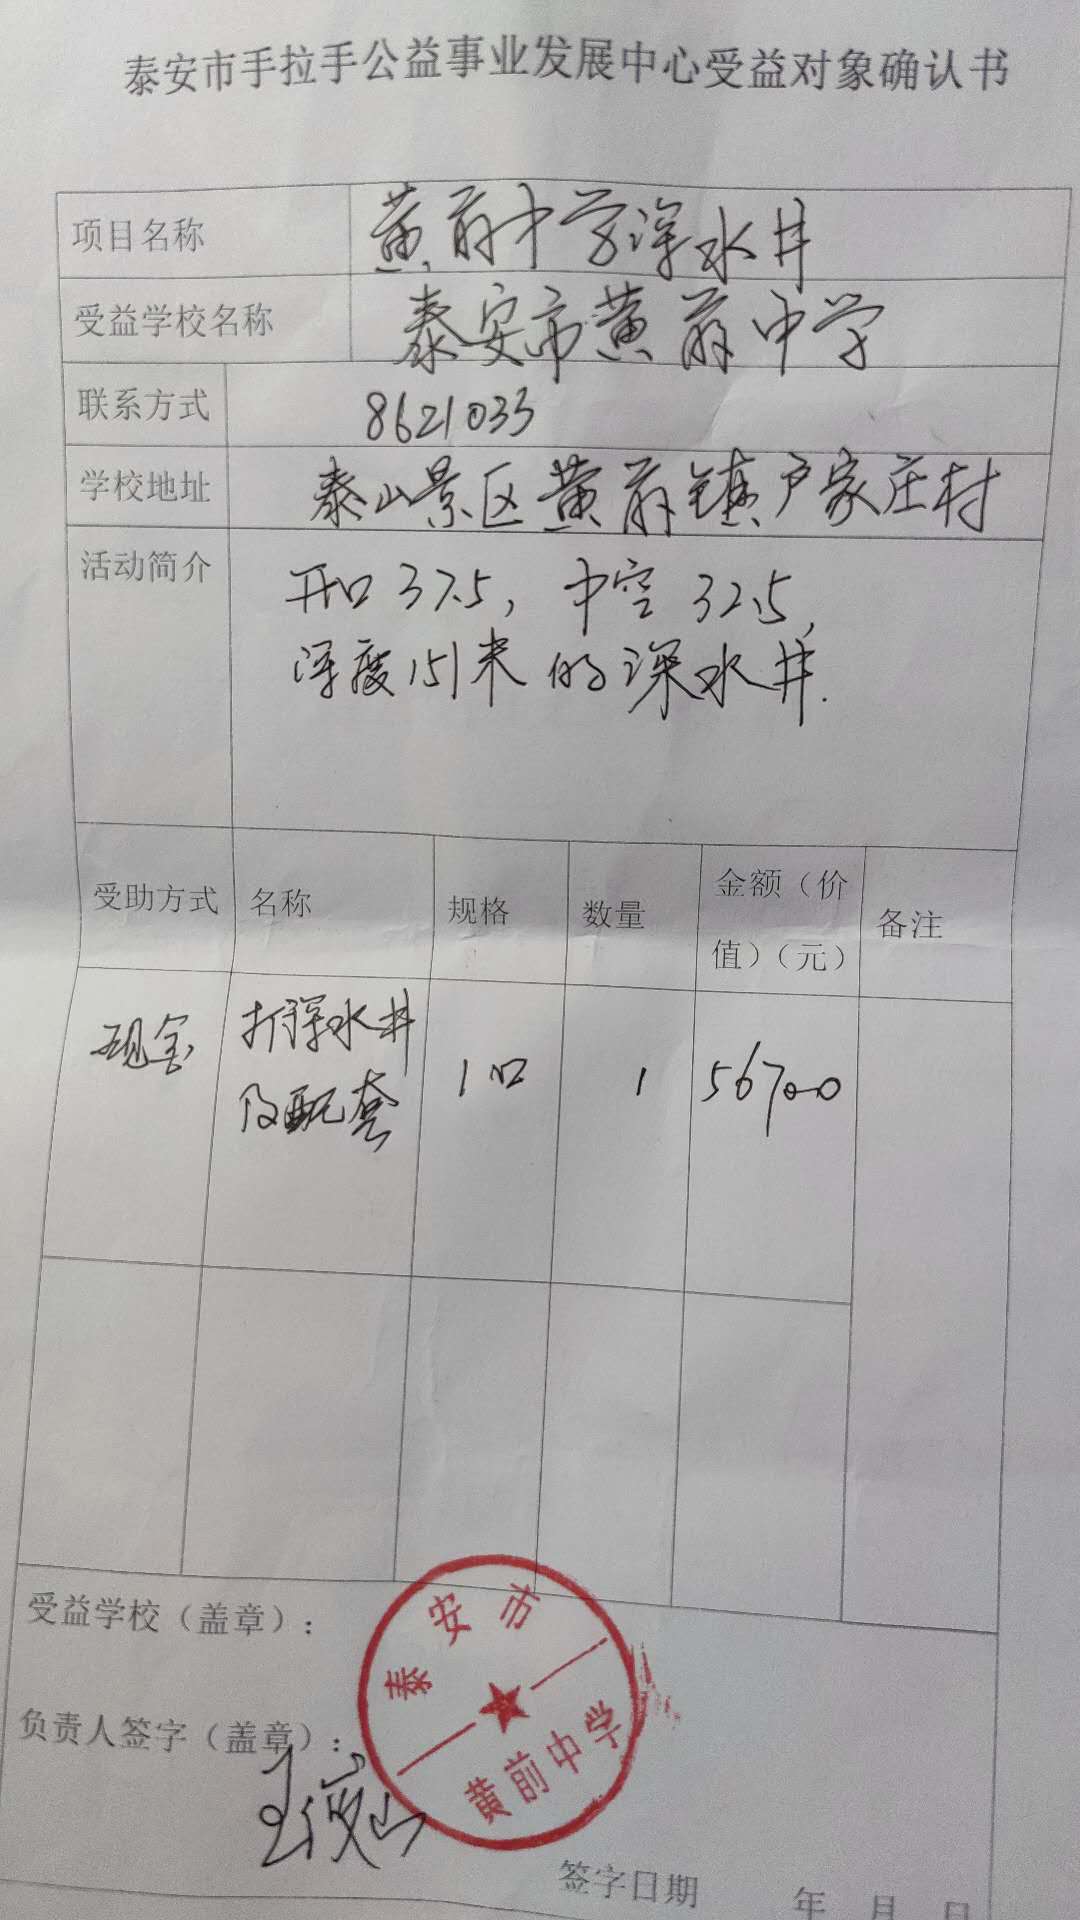 泰安市手拉手公益事业发展中心受益对象确认书
项目名称 黄前中学深水井
受益学校名称 泰安市黄前中学
联系方式 8621033
学校地址 泰山景区黄前镇卢家庄村
活动简介 开口37.5，中空32.5，
深度151米的深水井.
受助方式 名称 规格 数量 金额（价值）（元） 备注
现金 打深水井及配套 1口 1 56700
受益学校（盖章）：
泰安市
黄前中学
负责人签字（盖章）：
签字日期 年 月 日